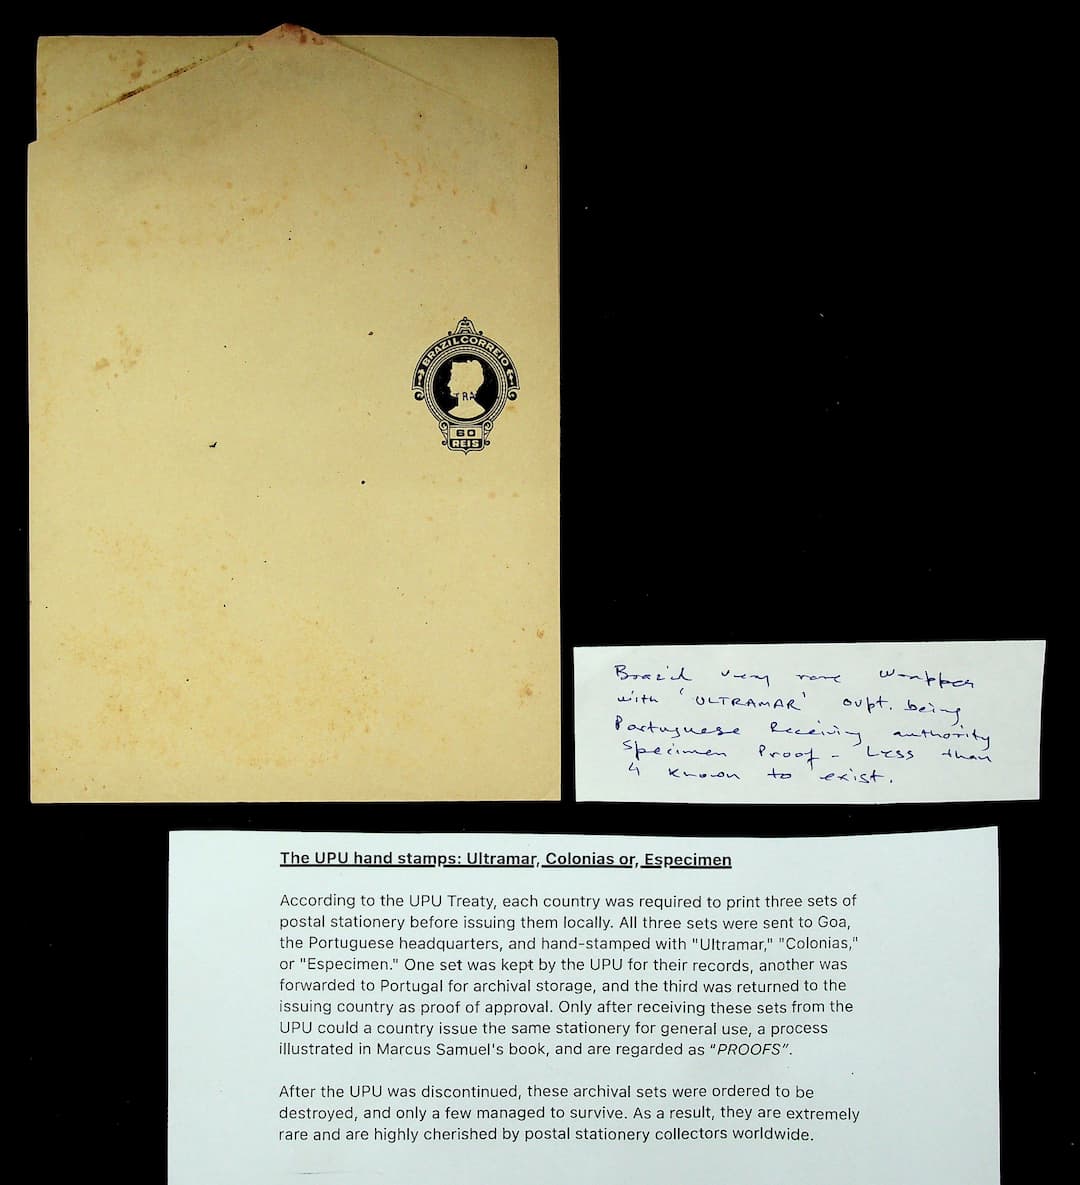 BRAZIL CORREIO
TRA
60
REIS
Brazil very rare wrapper
with 'ULTRAMAR' ovpt. being
Portuguese Receiving authority
Specimen Proof - Less than
4 known to exist.
The UPU hand stamps: Ultramar, Colonias or, Especimen
According to the UPU Treaty, each country was required to print three sets of
postal stationery before issuing them locally. All three sets were sent to Goa,
the Portuguese headquarters, and hand-stamped with "Ultramar," "Colonias,"
or "Especimen." One set was kept by the UPU for their records, another was
forwarded to Portugal for archival storage, and the third was returned to the
issuing country as proof of approval. Only after receiving these sets from the
UPU could a country issue the same stationery for general use, a process
illustrated in Marcus Samuel's book, and are regarded as "PROOFS".
After the UPU was discontinued, these archival sets were ordered to be
destroyed, and only a few managed to survive. As a result, they are extremely
rare and are highly cherished by postal stationery collectors worldwide.